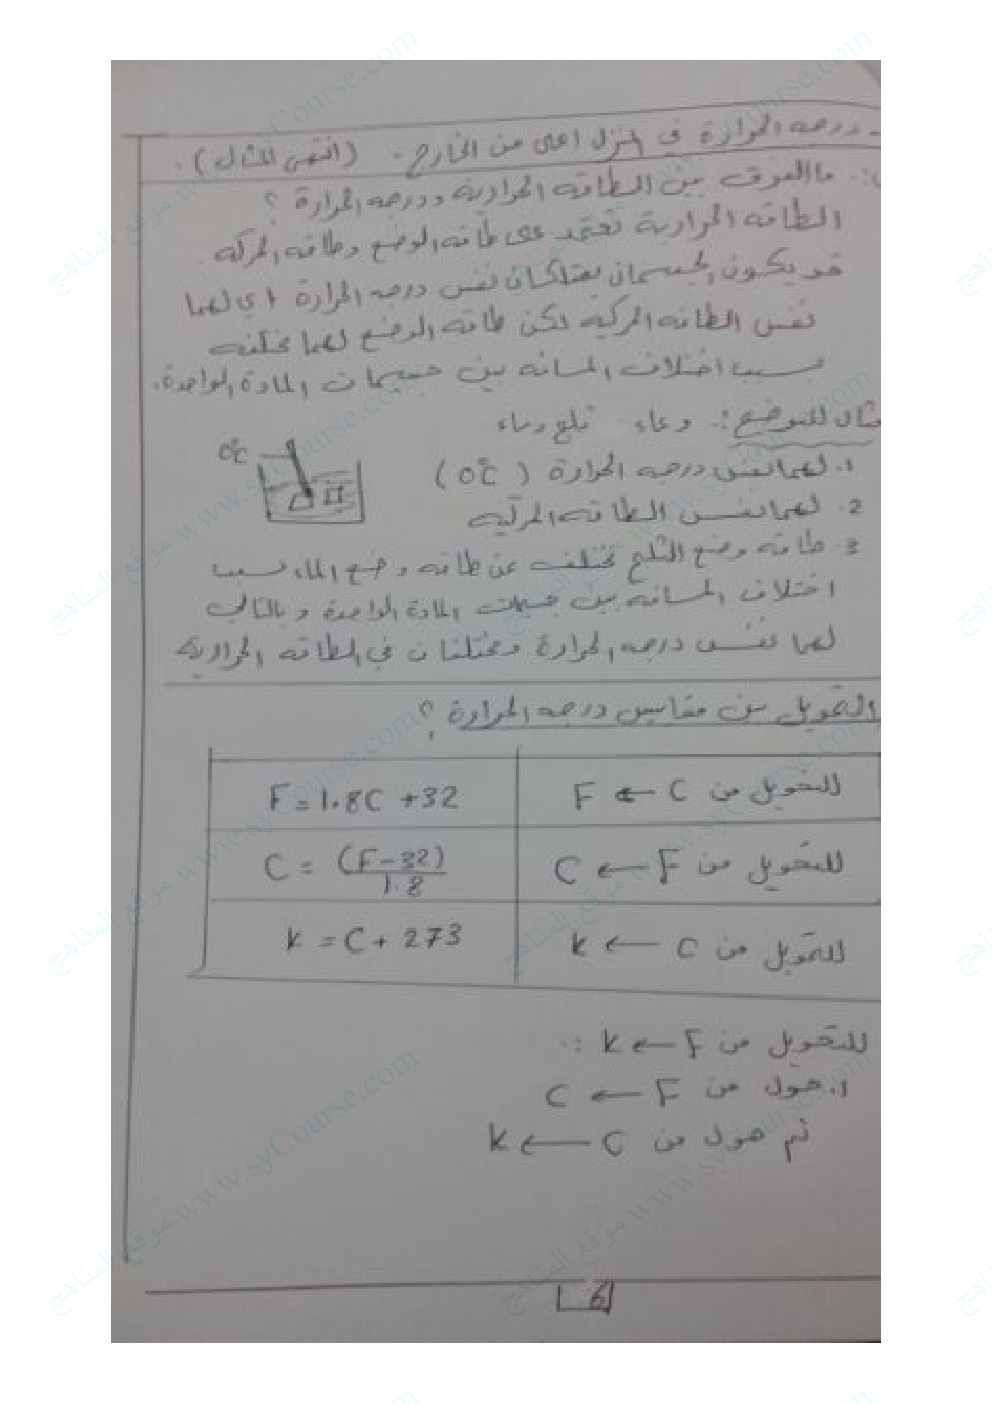 - درجه الحرارة في المنزل اعلى من الخارج. (انتهى المثال).
ما الفرق بين الطاقه الحرارية ودرجه الحرارة ؟
الطاقه الحرارية تعتمد على طاقه الوضع وطاقه الحركه.
قد يكون الجسمان يمتلكان نفس درجه الحرارة اي لهما
نفس الطاقه الحركيه لكن طاقه الوضع لهما مختلفه
بسبب اختلاف المسافه بين جسيمات المادة الواحدة.
مثال للتوضيح: وعاء ثلج وماء
0°C
1. لهما نفس درجه الحرارة (0°C)
2. لهما نفس الطاقه الحركيه
3. طاقه وضع الثلج تختلف عن طاقه وضع الماء بسبب
اختلاف المسافه بين جسيمات المادة الواحدة وبالتالي
لهما نفس درجه الحرارة ومختلفان في الطاقه الحرارية
التحويل بين مقاييس درجه الحرارة ؟
للتحويل من F ← C
F = 1.8C + 32
للتحويل من C ← F
C = (F-32) / 1.8
للتحويل من K ← C
K = C + 273
للتحويل من K ← F :.
1. حول من C ← F
ثم حول من K ← C
6
موقع المناهج www.syCourse.com